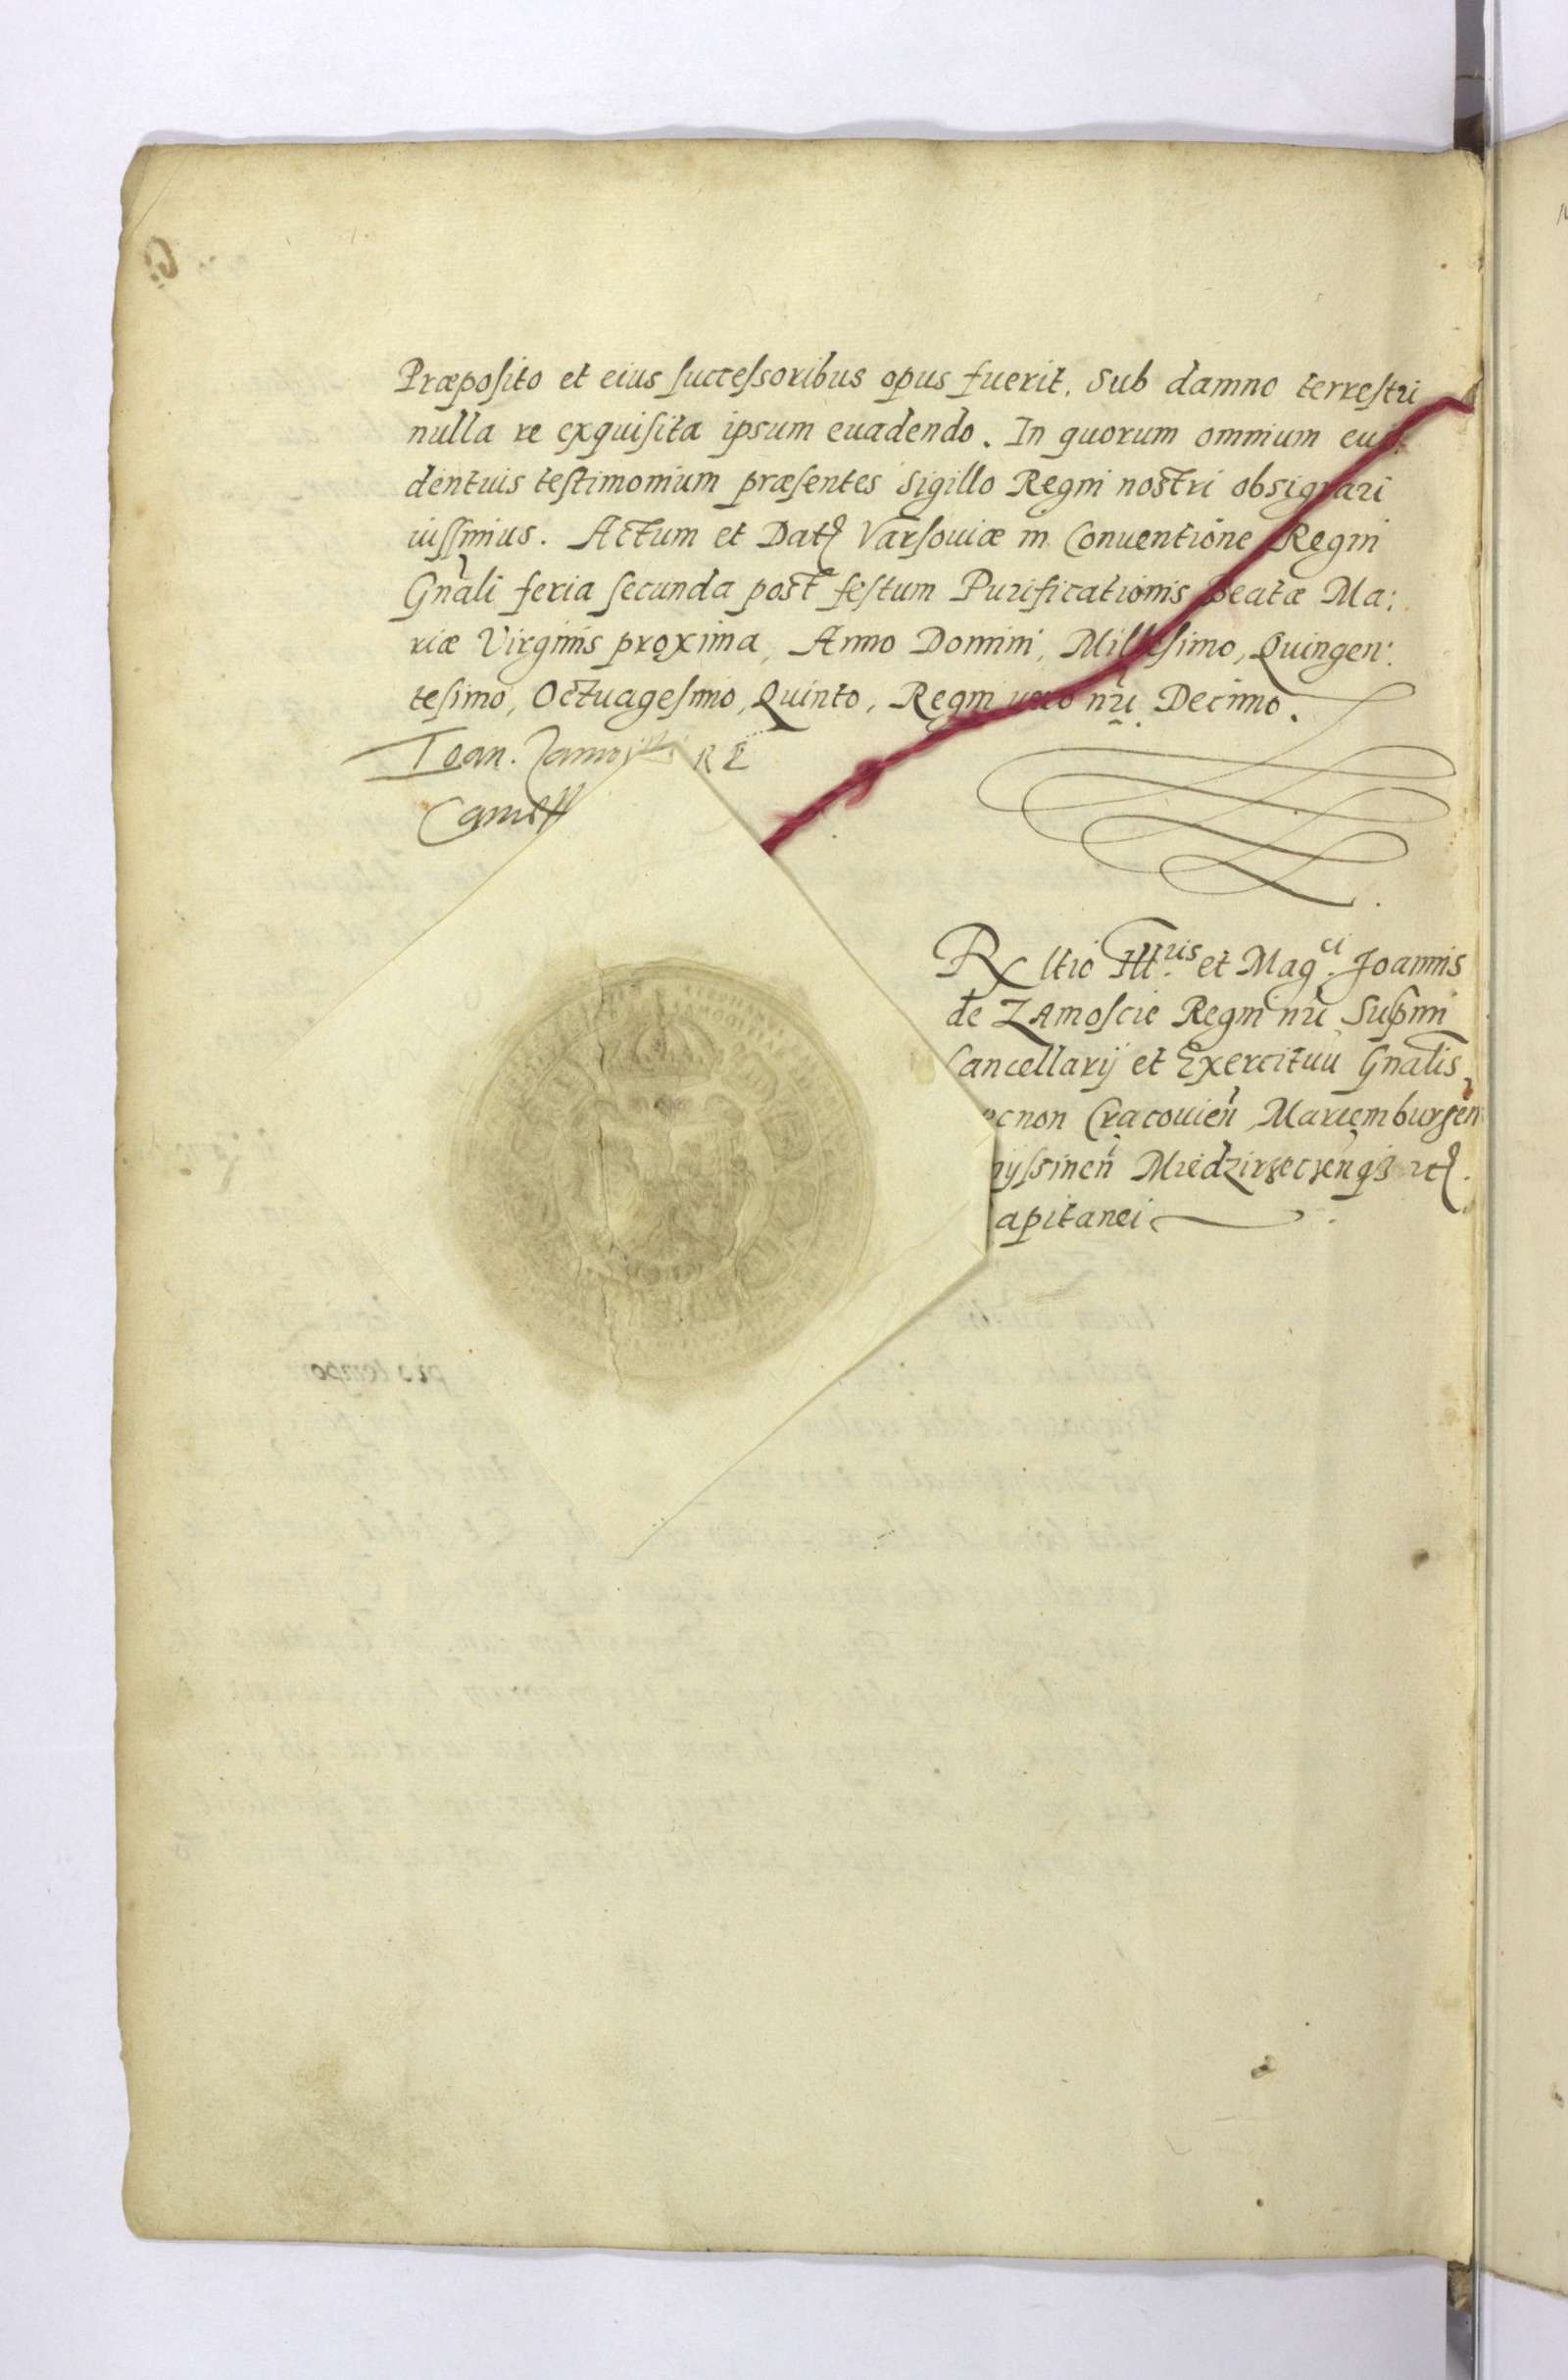 Præposito et eius successoribus opus fuerit. Sub damno terrestri
nulla re exquisita ipsum euadendo. In quorum omnium eui:
dentius testimonium præsentes Sigillo Regni nostri obsignari
iussimus. Actum et Dat Varsouiæ in Conuentione Regni
Gnali feria secunda post festum Purificationis Beatæ Ma:
riæ Virginis proxima, Anno Domini, Millesimo, Quingen:
tesimo, Octuagesimo, Quinto, Regni uero nri Decimo.
Ioan. Zamoy R E
Canc
Rltio Illris et Magci Joannis
de Zamoscie Regni nri Supmi
Cancellarij et Exercituu Gnalis
ecnon Cracouien Mariemburgen
nyssinen Miedzirzeczen
apitanei